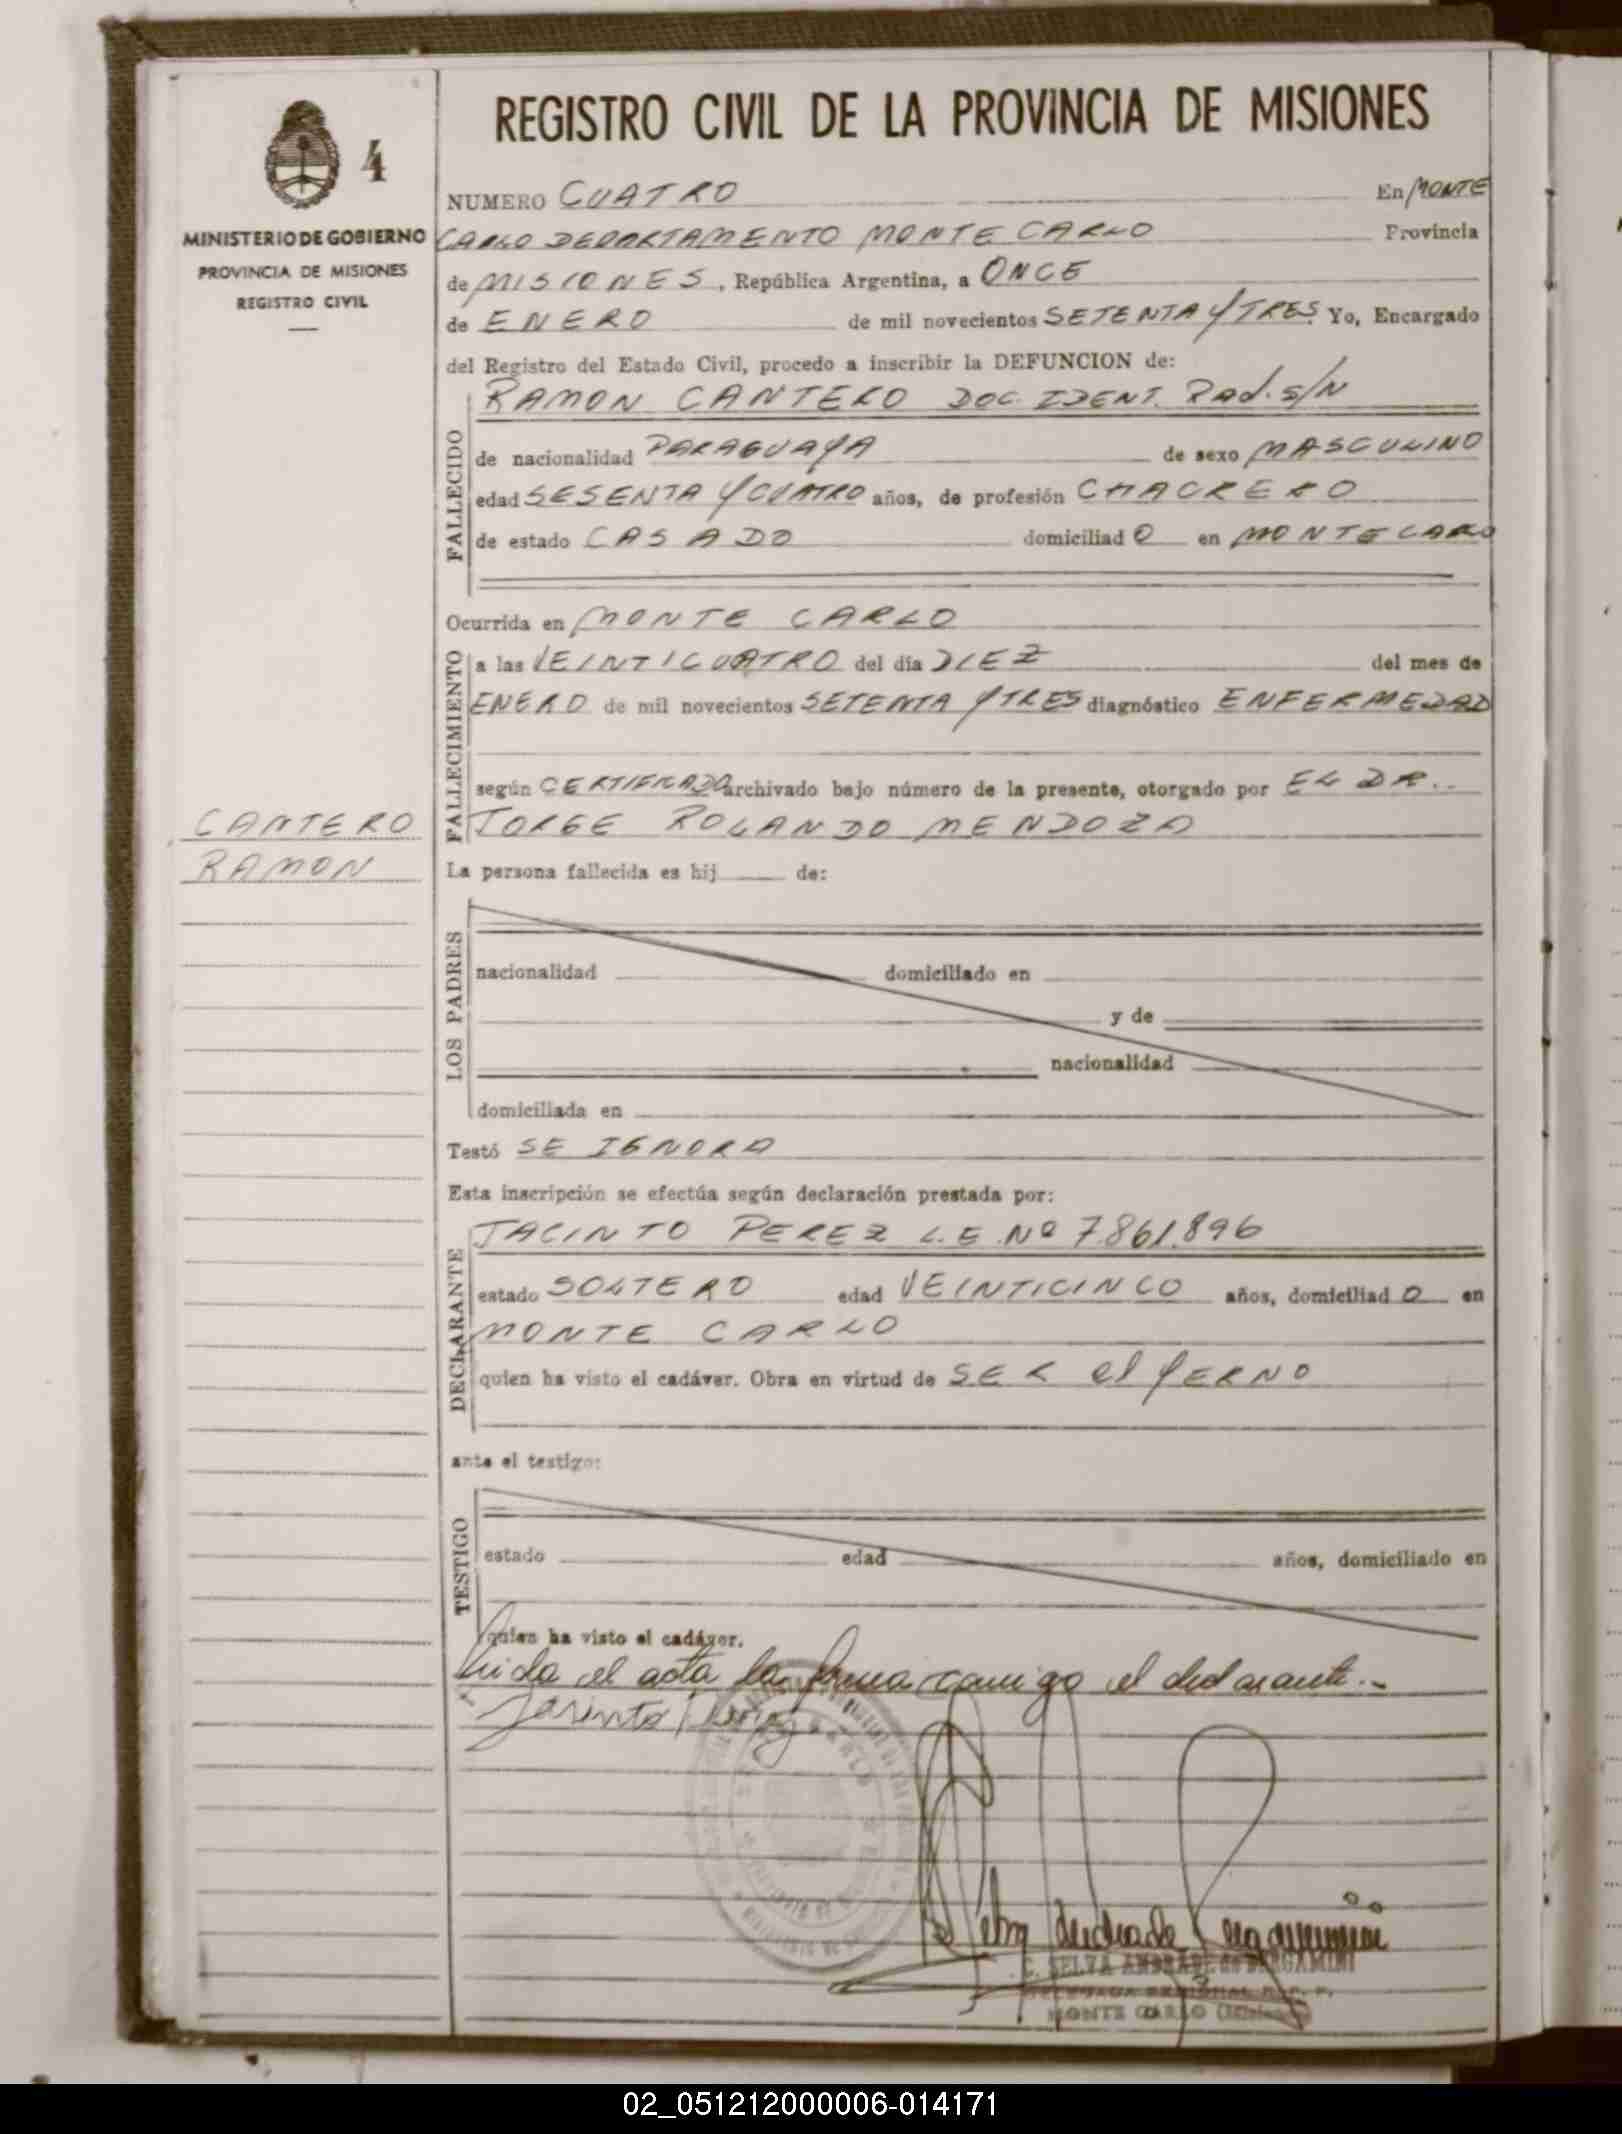 4
MINISTERIO DE GOBIERNO
PROVINCIA DE MISIONES
REGISTRO CIVIL
REGISTRO CIVIL DE LA PROVINCIA DE MISIONES
NUMERO CUATRO En MONTE
CARLO DEPARTAMENTO MONTE CARLO Provincia
de MISIONES, República Argentina, a ONCE
de ENERO de mil novecientos SETENTA Y TRES Yo, Encargado
del Registro del Estado Civil, procedo a inscribir la DEFUNCION de:
FALLECIDO
RAMON CANTERO DOC. IDENT. Rad. S/N
de nacionalidad PARAGUAYA de sexo MASCULINO
edad SESENTA Y CUATRO años, de profesión CHACRERO
de estado CASADO domiciliad O en MONTE CARLO
Ocurrida en MONTE CARLO
FALLECIMIENTO
a las VEINTICUATRO del día DIEZ del mes de
ENERO de mil novecientos SETENTA Y TRES diagnóstico ENFERMEDAD
según CERTIFICADO archivado bajo número de la presente, otorgado por EL DR..
JORGE ROLANDO MENDOZA
CANTERO
RAMON
La persona fallecida es hij de:
LOS PADRES
nacionalidad domiciliado en
y de
nacionalidad
domiciliada en
Testó SE IGNORA
Esta inscripción se efectúa según declaración prestada por:
DECLARANTE
JACINTO PEREZ L.E. Nº 7.861.896
estado SOLTERO edad VEINTICINCO años, domiciliad O en
MONTE CARLO
quien ha visto el cadáver. Obra en virtud de SER el YERNO
ante el testigo:
TESTIGO
estado edad años, domiciliado en
quien ha visto el cadáver.
Leida el acta la firma conmigo el declarante.-
Jasinto Perez
Selva Andrade Bergamini
C. SELVA ANDRADE de BERGAMINI
DELEGADA REGIONAL R.P.P.
MONTE CARLO (Misiones)
02_051212000006-014171